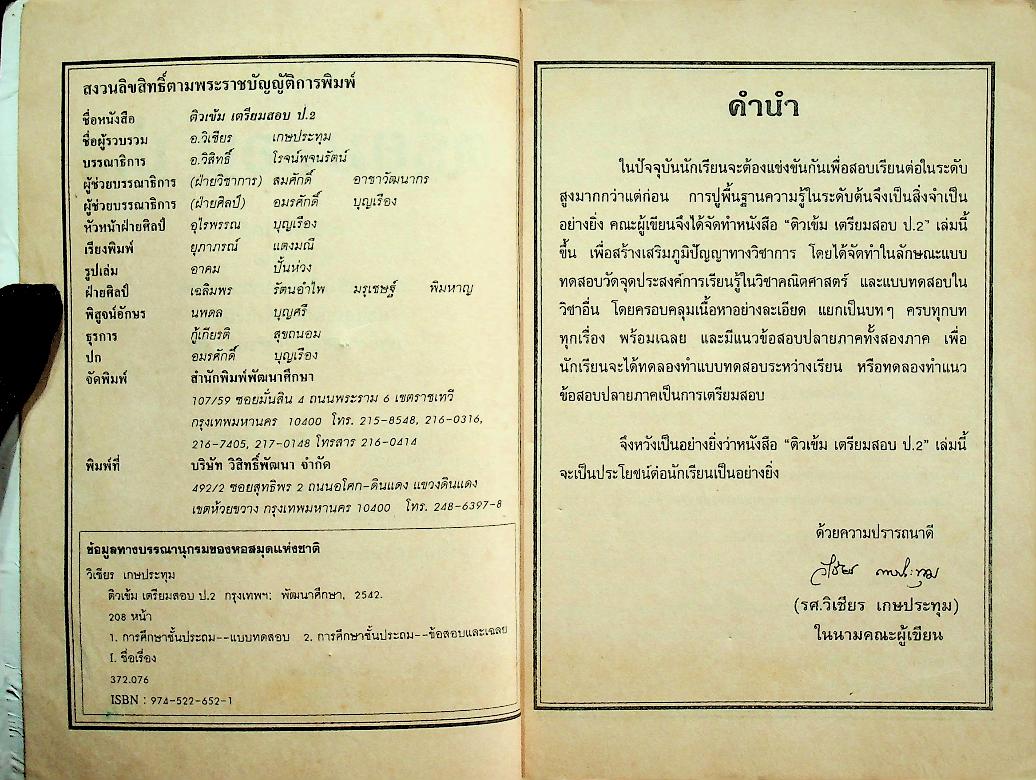 สงวนลิขสิทธิ์ตามพระราชบัญญัติการพิมพ์
ชื่อหนังสือ ติวเข้ม เตรียมสอบ ป.2
ชื่อผู้รวบรวม อ.วิเชียร เกษประทุม
บรรณาธิการ อ.วิสิทธิ์ โรจน์พจนรัตน์
ผู้ช่วยบรรณาธิการ (ฝ่ายวิชาการ) สมศักดิ์ อาชาวัฒนากร
ผู้ช่วยบรรณาธิการ (ฝ่ายศิลป์) อมรศักดิ์ บุญเรือง
หัวหน้าฝ่ายศิลป์ อุไรพรรณ บุญเรือง
เรียงพิมพ์ ยุภาภรณ์ แตงมณี
รูปเล่ม อาคม ปั้นห่วง
ฝ่ายศิลป์ เฉลิมพร รัตนอำไพ มรุเชษฐ์ พิมหาญ
พิสูจน์อักษร นพดล บุญศรี
ธุรการ กู้เกียรติ สุขถนอม
ปก อมรศักดิ์ บุญเรือง
จัดพิมพ์ สำนักพิมพ์พัฒนาศึกษา
107/59 ซอยมั่นสิน 4 ถนนพระราม 6 เขตราชเทวี
กรุงเทพมหานคร 10400 โทร. 215-8548, 216-0316,
216-7405, 217-0148 โทรสาร 216-0414
พิมพ์ที่ บริษัท วิสิทธิ์พัฒนา จำกัด
492/2 ซอยสุทธิพร 2 ถนนอโศก-ดินแดง แขวงดินแดง
เขตห้วยขวาง กรุงเทพมหานคร 10400 โทร. 248-6397-8
ข้อมูลทางบรรณานุกรมของหอสมุดแห่งชาติ
วิเชียร เกษประทุม
ติวเข้ม เตรียมสอบ ป.2 กรุงเทพฯ: พัฒนาศึกษา, 2542.
208 หน้า
1. การศึกษาชั้นประถม--แบบทดสอบ 2. การศึกษาชั้นประถม--ข้อสอบและเฉลย
I. ชื่อเรื่อง
372.076
ISBN : 974-522-652-1
คำนำ
ในปัจจุบันนักเรียนจะต้องแข่งขันกันเพื่อสอบเรียนต่อในระดับ
สูงมากกว่าแต่ก่อน การปูพื้นฐานความรู้ในระดับต้นจึงเป็นสิ่งจำเป็น
อย่างยิ่ง คณะผู้เขียนจึงได้จัดทำหนังสือ "ติวเข้ม เตรียมสอบ ป.2" เล่มนี้
ขึ้น เพื่อสร้างเสริมภูมิปัญญาทางวิชาการ โดยได้จัดทำในลักษณะแบบ
ทดสอบวัดจุดประสงค์การเรียนรู้ในวิชาคณิตศาสตร์ และแบบทดสอบใน
วิชาอื่น โดยครอบคลุมเนื้อหาอย่างละเอียด แยกเป็นบทๆ ครบทุกบท
ทุกเรื่อง พร้อมเฉลย และมีแนวข้อสอบปลายภาคทั้งสองภาค เพื่อ
นักเรียนจะได้ทดลองทำแบบทดสอบระหว่างเรียน หรือทดลองทำแนว
ข้อสอบปลายภาคเป็นการเตรียมสอบ
จึงหวังเป็นอย่างยิ่งว่าหนังสือ "ติวเข้ม เตรียมสอบ ป.2" เล่มนี้
จะเป็นประโยชน์ต่อนักเรียนเป็นอย่างยิ่ง
ด้วยความปรารถนาดี
วิเชียร เกษประทุม
(รศ.วิเชียร เกษประทุม)
ในนามคณะผู้เขียน